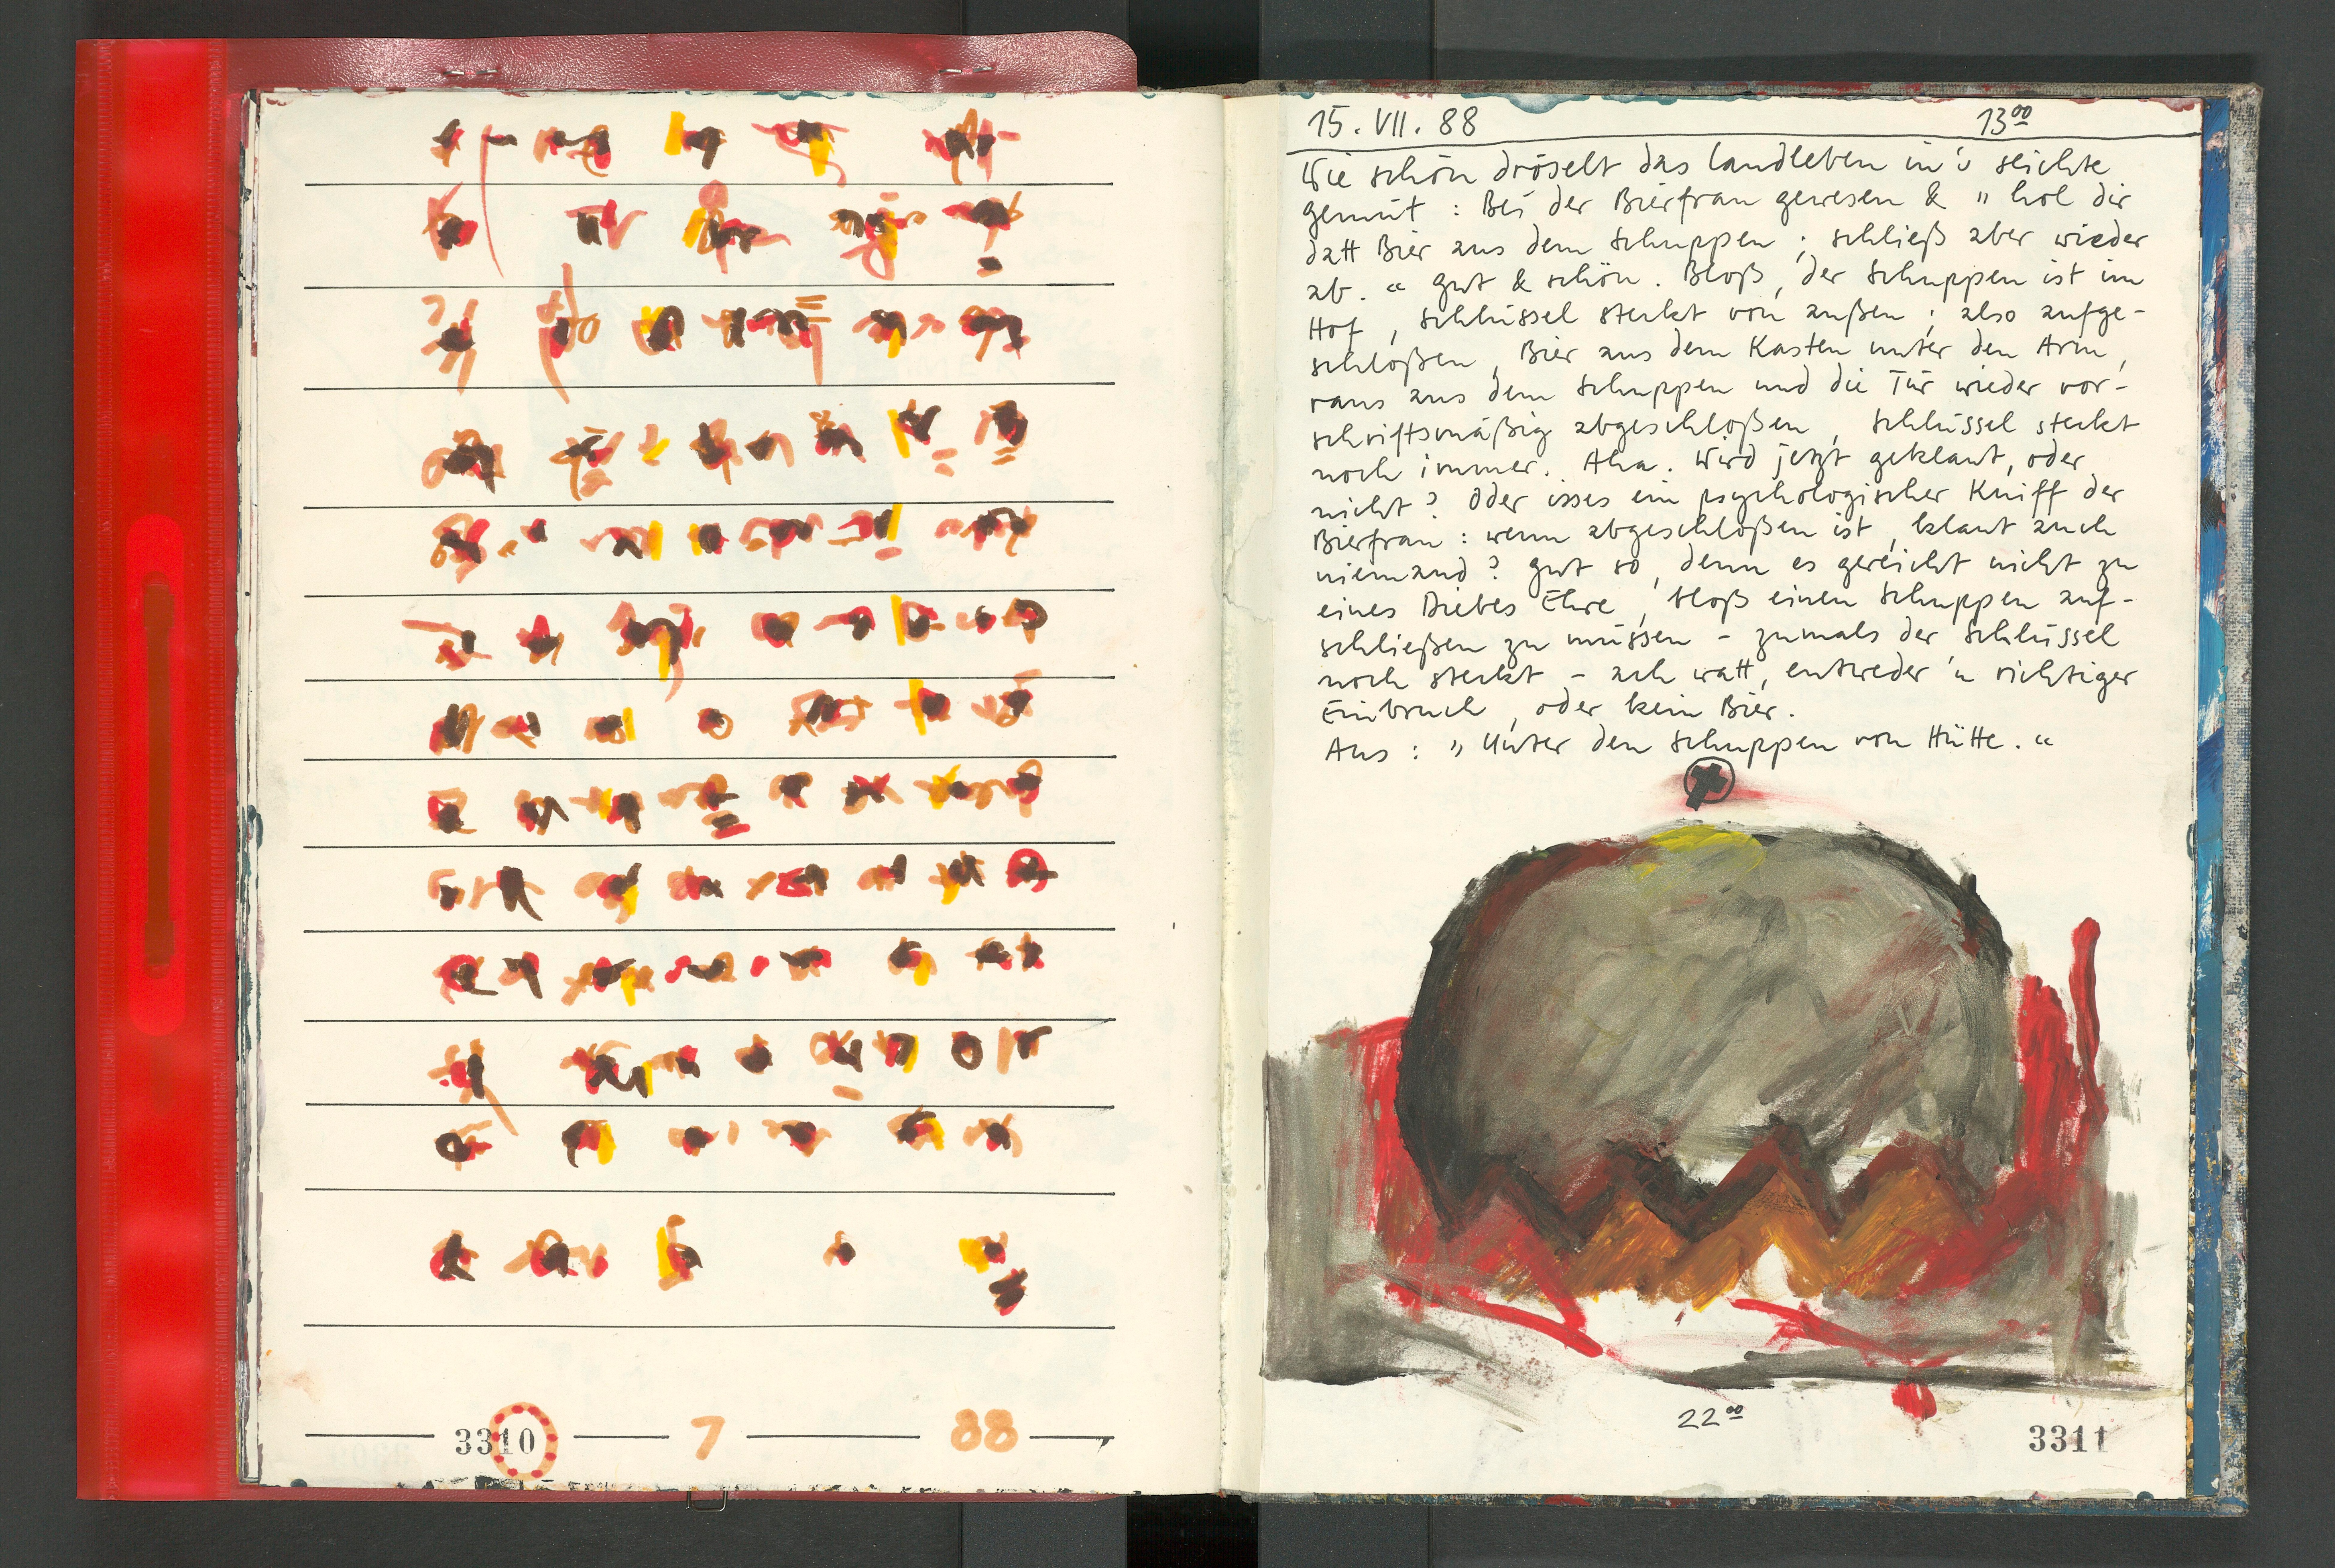 3310 7 88
15. VII. 88 13⁰⁰
Wie schön dröselt das Landleben in's seichte
gemüt : Bei der Bierfrau gewesen & „ hol dir
datt Bier aus dem Schuppen ; schließ aber wieder
ab. “ gut & schön. Bloß, der Schuppen ist im
Hof , Schlüssel steckt von außen ; also aufge-
schloßen , Bier aus dem Kasten unter den Arm ,
raus aus dem Schuppen und die Tür wieder vor-
schriftsmäßig abgeschloßen , Schlüssel steckt
noch immer. Aha. Wird jetzt geklaut, oder
nicht ? Oder isses ein psychologischer Kniff der
Bierfrau : wenn abgeschloßen ist , klaut auch
niemand ? gut so , denn es gereicht nicht zu
eines Diebes Ehre , bloß einen Schuppen auf-
schließen zu müssen – zumals der Schlüssel
noch steckt – ach watt, entweder 'n richtiger
Einbruch , oder kein Bier.
Aus : „ Unter den Schuppen von Hütte. “
22⁰⁰
3311